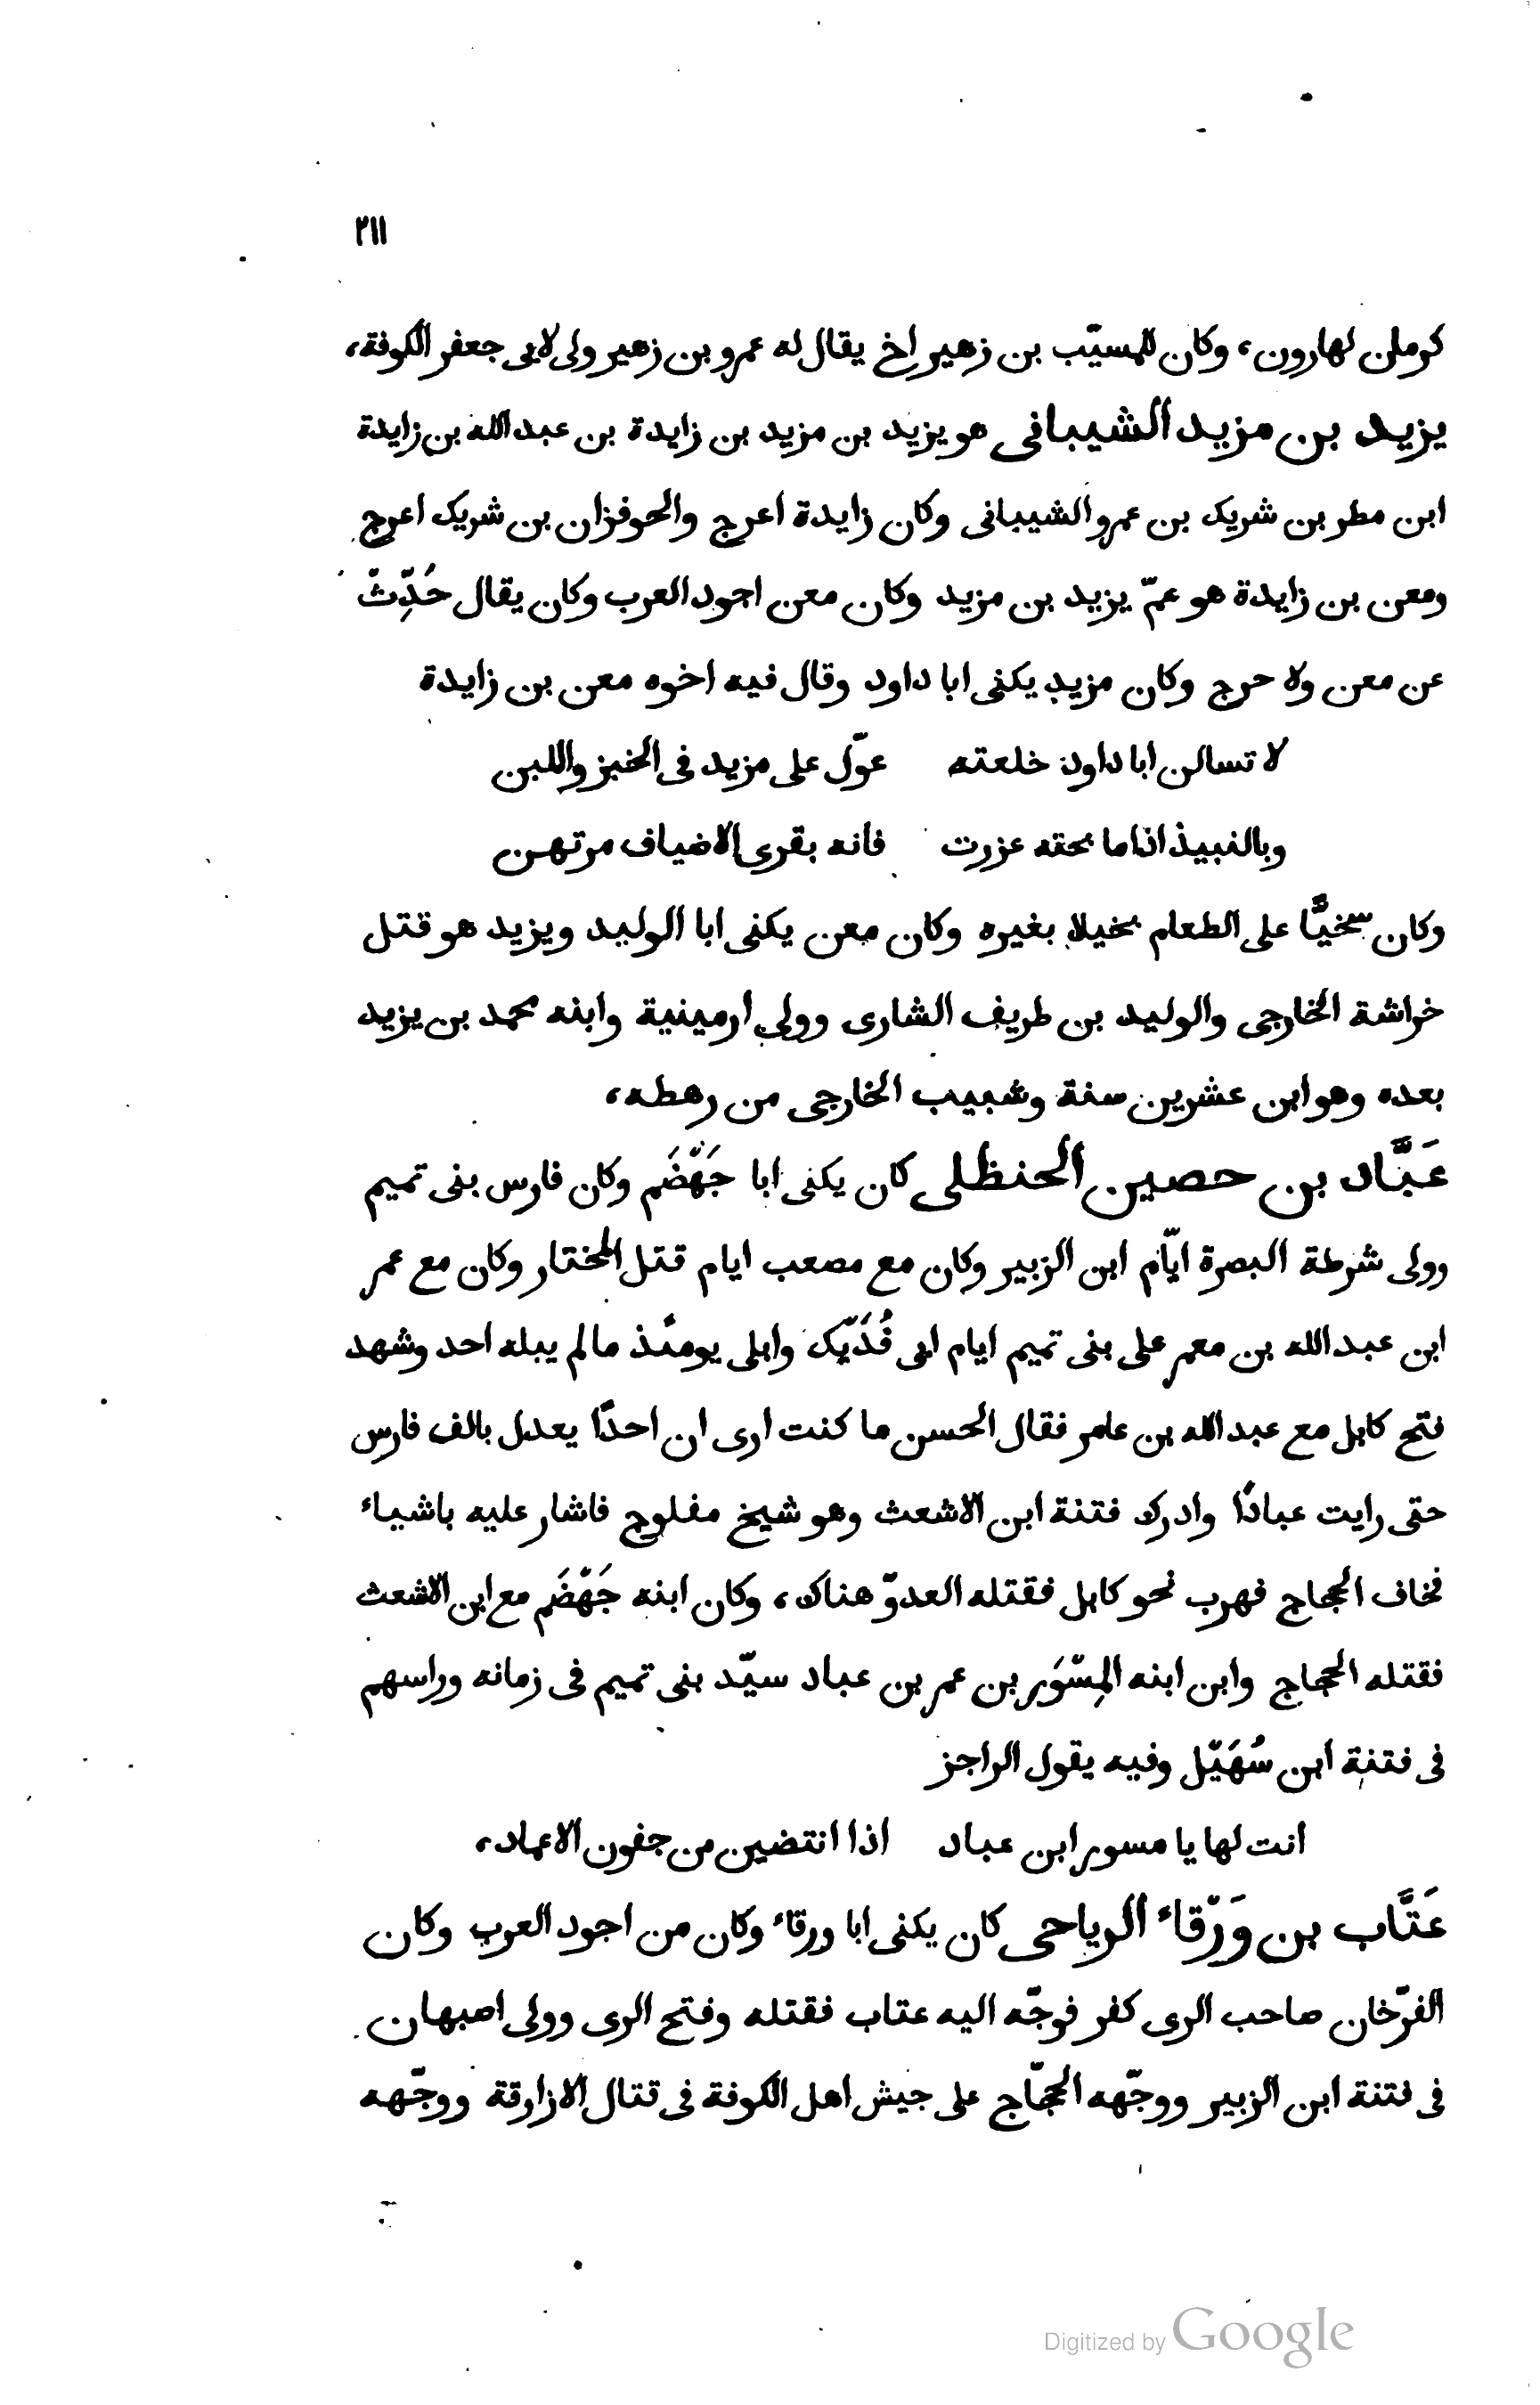 ٢١١
كرمان لهارون، وكان للمسيّب بن زهير اخ يقال له عمرو بن زهير ولى لابى جعفر الكوفة،
يزيد بن مزيد الشيبانى هو يزيد بن مزيد بن زايدة بن عبد الله بن زايدة
ابن مطر بن شريك بن عمرو الشيبانى وكان زايدة اعرج والحوفزان بن شريك اعرج
ومعن بن زايدة هو عمّ يزيد بن مزيد وكان معن اجود العرب وكان يقال حُدِّثْ
عن معن ولا حرج وكان مزيد يكنى ابا داود وقال فيه اخوه معن بن زايدة
لا تسالن ابا داود خلعته عوّل على مزيد فى الخبز واللبن
وبالنبيذ اذا ما بحته عزرت فانه بقرى الاضياف مرتهن
وكان سخيًّا على الطعام بخيلا بغيره وكان معن يكنى ابا الوليد ويزيد هو قتل
خراشة الخارجى والوليد بن طريف الشارى وولى ارمينية وابنه محمد بن يزيد
بعده وهو ابن عشرين سنة وشبيب الخارجى من رهطه،
عَبَّاد بن حصين الحنظلى كان يكنى ابا جَهْضَم وكان فارس بنى تميم
وولى شرطة البصرة ايّام ابن الزبير وكان مع مصعب ايام قتل المختار وكان مع عمر
ابن عبد الله بن معمر على بنى تميم ايام ابى فُدَيْك وابلى يومئذ مالم يبله احد وشهد
فتح كابل مع عبد الله بن عامر فقال الحسن ما كنت ارى ان احدًا يعدل بالف فارس
حتى رايت عبادًا وادرك فتنة ابن الاشعث وهو شيخ مفلوج فاشار عليه باشياء
فخاف الحجاج فهرب نحو كابل فقتله العدوّ هناك، وكان ابنه جَهْضَم مع ابن الاشعث
فقتله الحجاج وابن ابنه المِسْوَر بن عمر بن عباد سيّد بنى تميم فى زمانه وراسهم
فى فتنة ابن سُهَيْل وفيه يقول الراجز
انت لها يا مسور ابن عباد اذا انتضين من جفون الاغماد،
عَتَّاب بن وَرْقاء الرياحى كان يكنى ابا ورقاء وكان من اجود العرب وكان
الفرّخان صاحب الرى كفر فوجّه اليه عتاب فقتله وفتح الرى وولى اصبهان
فى فتنة ابن الزبير ووجّهه الحجّاج على جيش اهل الكوفة فى قتال الازارقة ووجّهه
Digitized by Google